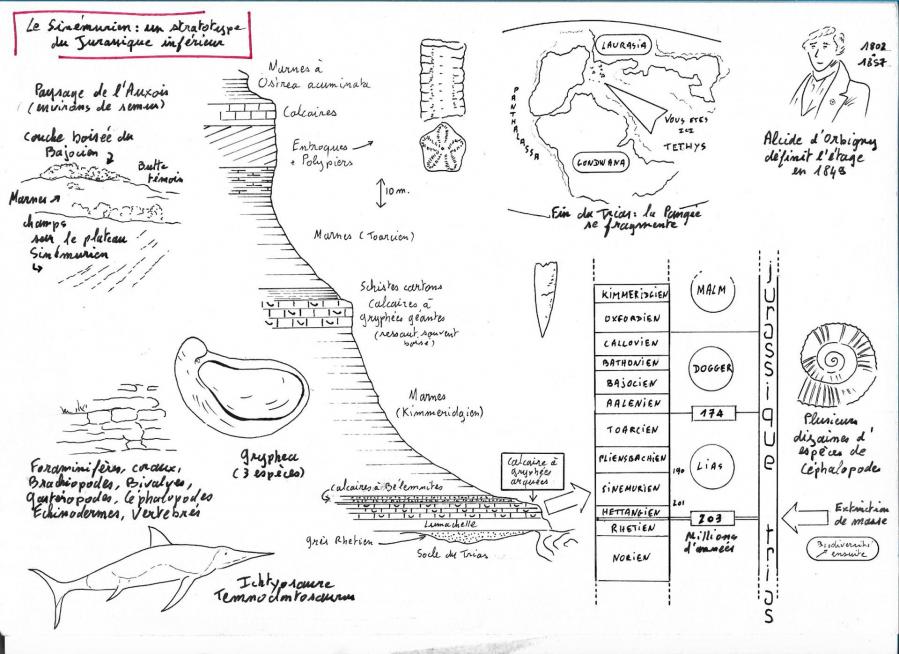 Le Sinémurien : un stratotype
du Jurassique inférieur
Paysage de l'Auxois
(environs de semur)
Couche boisée du
Bajocien
Butte
témoin
Marnes
champs
sur le plateau
Sinémurien
Marnes à
Ostrea acuminata
Calcaires
Entroques
+ Polypiers
10 m.
Marnes (Toarcien)
Schistes cartons
Calcaires à
gryphées géantes
(ressaut souvent
boisé)
Marnes
(Kimmeridgien)
Calcaires à Bélemnites
Calcaire à
gryphées
arquées
Lumachelle
Grès Rhetien
Socle du Trias
Gryphea
(3 espèces)
Foraminifères, coraux,
Brachiopodes, Bivalves,
Gastéropodes, Céphalopodes
Echinodermes, Vertebrés
Ichtyosaure
Temnodontosaurus
LAURASIA
PANTHALASSA
VOUS ETES
ICI
TETHYS
GONDWANA
Fin du Trias : la Pangée
se fragmente
1802
1857
Alcide d'Orbigny
définit l'étage
en 1849
KIMMERIDGIEN
OXFORDIEN
CALLOVIEN
BATHONIEN
BAJOCIEN
AALENIEN
TOARCIEN
PLIENSBACHIEN
SINEMURIEN
HETTANGIEN
RHETIEN
NORIEN
MALM
DOGGER
174
LIAS
190
201
203
Millions
d'années
jurassique
trias
Plusieurs
dizaines d'
espèces de
Céphalopode
Extinction
de masse
Biodiversité
ensuite